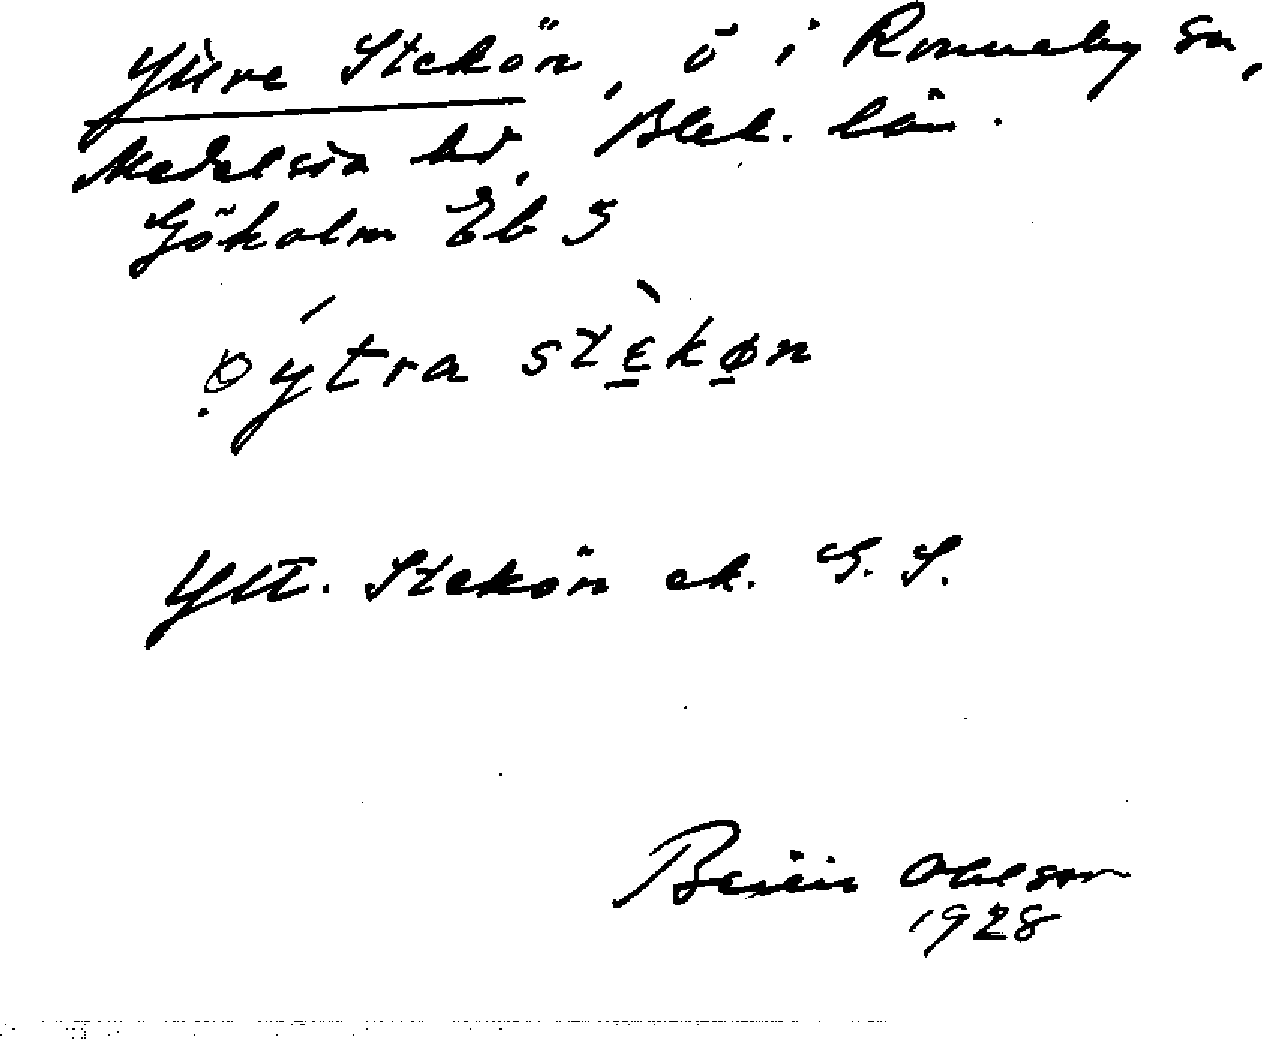 Yttre Stekön, ö i Ronneby sn,
Medelsta hd, Blek. län.
Gökalm Eb 5
ýtra stèkøn
Ytt. Stekön ek. G. S.
Bertil Ohlson
1928